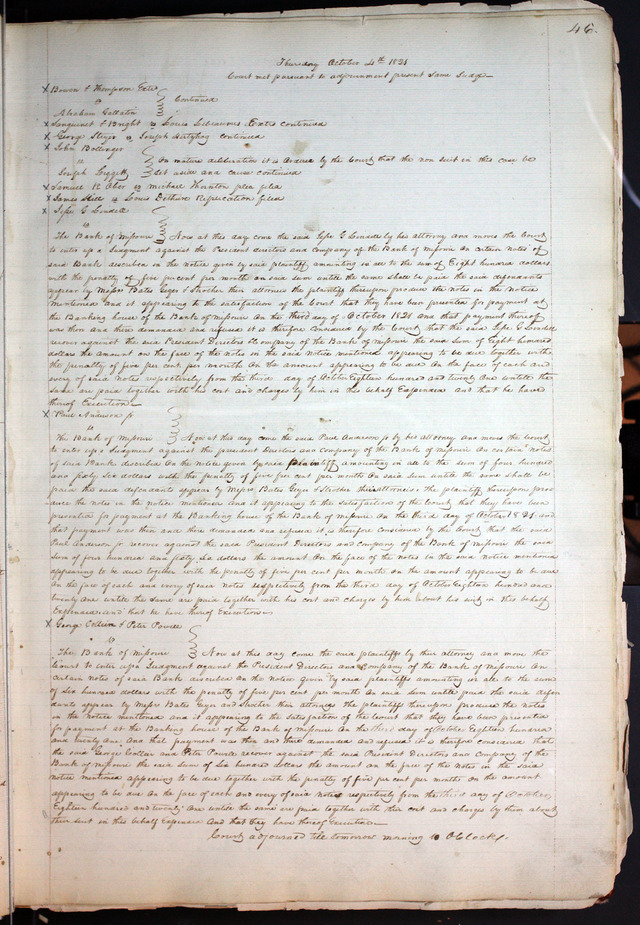 46.
Thursday October 4th 1821
Court met pursuant to adjournment present same Judge
X Bowen & Thompson Exrs
vs
Continued
Abraham Gallatin
X Sanguinet & Bright vs Louis Exrs continued
X George vs Joseph continued
X John Bollinger
vs
On mature deliberation it is Ordered by the Court that the non suit in this case be
Joseph
Set aside and cause continued
X Samuel R Ober vs Michael Thornton plea filed
X James vs Louis Replication filed
X Jesse G Lindell
vs
The Bank of Missouri
Now at this day come the said Jesse G Lindell by his attorney and moves the Court
to enter up a Judgment against the President directors and company of the Bank of Missouri On certain notes of
said Bank described in the notice given by said plaintiff amounting in all to the sum of Eight hundred dollars
with the penalty of five per cent per month on said sum untill the same shall be paid the said defendants
appear by Messrs Bates Geyer & Strother their attornies the plaintiff thereupon produce the notes in the notice
mentioned and it appearing to the satisfaction of the Court that they have been presented for payment at
the Banking house of the Bank of Missouri On the third day of October 1821 and that payment thereof
was then and there demanded and refused it is therefore considered by the Court that the said Jesse G Lindell
recover against the said President Directors & Company of the Bank of Missouri the said Sum of Eight hundred
dollars the amount on the face of the notes in the said notice mentioned appearing to be due together with
the penalty of five per cent. per month On the amount appearing to be due On the face of each and
every of said notes respectively from the third day of October Eighteen hundred and twenty One untill the
same are paid together with his cost and charges by him in this behalf Expended and that he have
thereof Execution
X Paul Anderson jr
vs
The Bank of Missouri
Now at this day come the said Paul Anderson jr by his attorney and moves the Court
to enter up a Judgment against the president Directors and Company of the Bank of Missouri On certain notes
of said Bank described On the notice given by said plaintiff amounting in all to the sum of four hundred
and sixty six dollars with the penalty of five per cent per month On said sum untill the same shall be
paid the said defendants appear by Messrs Bates Geyer & Strother their attornies the plaintiff thereupon prod
uce the notes in the notice mentioned and it appearing to the satisfaction of the Court that they have been
presented for payment at the Banking house of the Bank of Missouri On the third day of October 1821 and
that payment was then and there demanded and refused it is therefore considered by the Court that the said
Paul Anderson jr recover against the said President Directors and Company of the Bank of Missouri the said
Sum of four hundred and sixty six dollars the amount On the face of the notes in the said notice mentioned
appearing to be due together with the penalty of five per cent per month on the amount appearing to be due
On the face of each and every of said notes respectively from the third day of October Eighteen hundred and
twenty One untill the same are paid together with his cost and charges by him about his suit in this behalf
Expended and that he have thereof Execution
X George Collier & Peter Powell
vs
The Bank of Missouri
Now at this day come the said plaintiffs by their attorney and move the
Court to enter up a Judgment against the President Directors and Company of the Bank of Missouri On
certain notes of said Bank described On the notice given by said plaintiffs amounting in all to the sum
of Six hundred dollars with the penalty of five per cent per month On said sum untill paid the said defen
dants appear by Messrs Bates Geyer and Strother their attornies the plaintiffs thereupon produced the notes
in the notice mentioned and it appearing to the Satisfaction of the Court that they have been presented
for payment at the Banking house of the Bank of Missouri On the third day of October Eighteen hundred
and twenty One and that payment was then and there demanded and refused it is therefore considered that
the said George Collier and Peter Powell recover against the said President Directors and Company of the
Bank of Missouri the said Sum of Six hundred dollars the amount on the face of the notes in the said
notice mentioned appearing to be due together with the penalty of five per cent per month On the amount
appearing to be due On the face of each and every of said notes respectively from the third day of October
Eighteen hundred and twenty One untill the same are paid together with their cost and charges by them about
their suit in this behalf Expended And that they have thereof Execution
Court adjourned till tomorrow morning 10 OClock